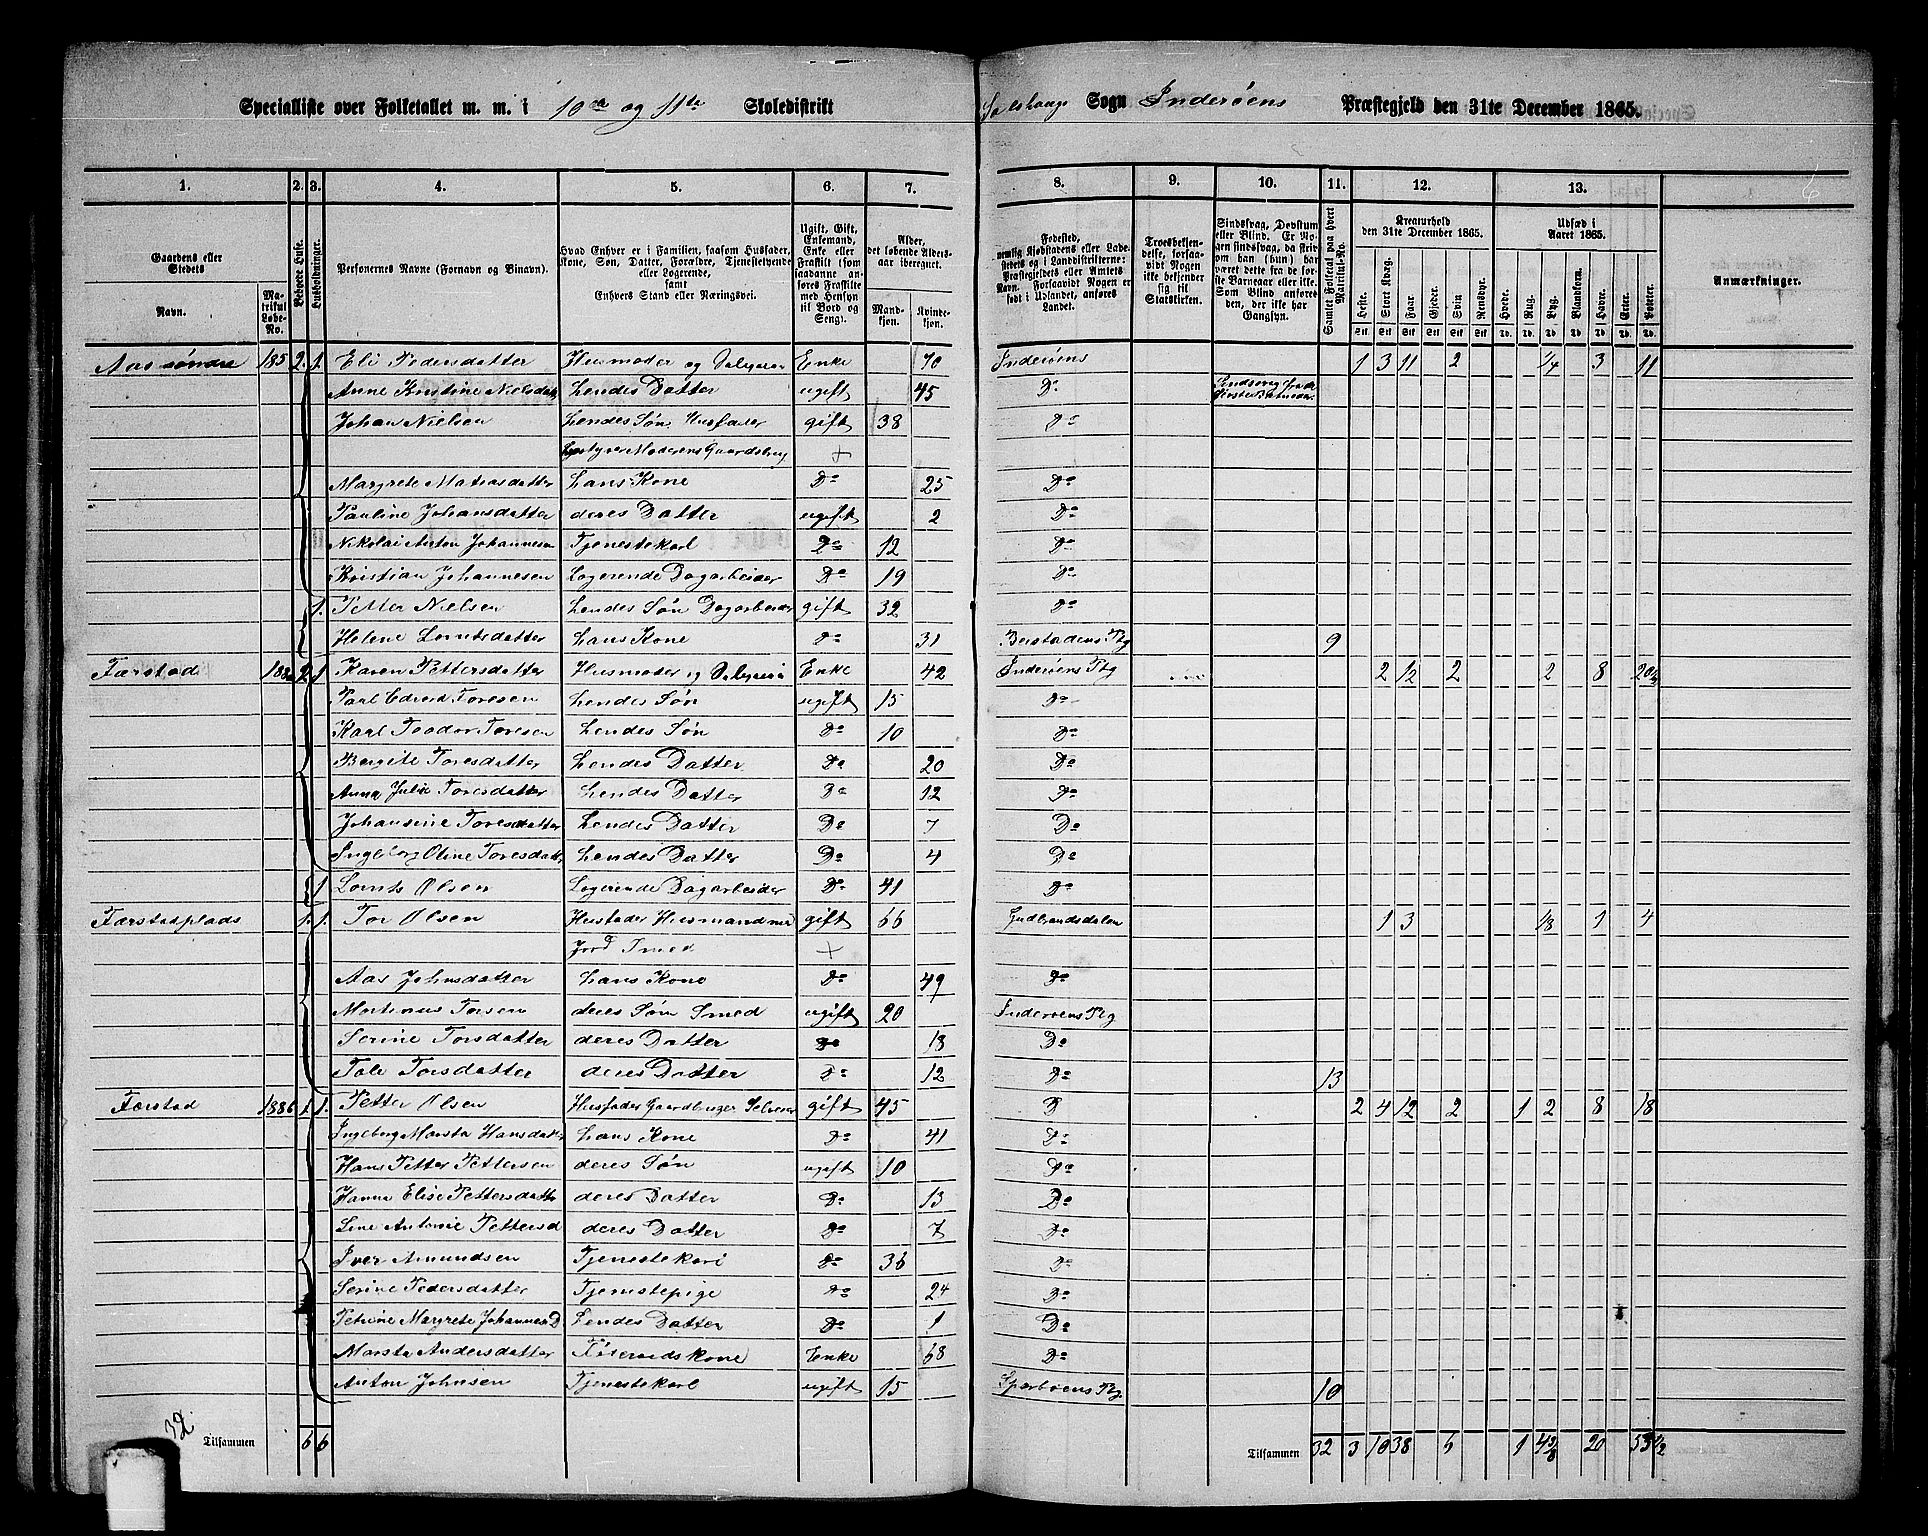 Specialliste over Folketallet m. m. i 10de og 11te Skoledistrikt Sogn Inderøens Præstegjeld den 31te December 1865.
1. 2. 3. 4. 5. 6. 7. 8. 9. 10. 11. 12. 13.
Gaardens eller Stedets
Navn. Matrikul Løbe-No.
Bebyggede Huse.
Husholdninger.
Personernes Navne (Fornavn og Binavn).
Hvad Enhver er i Familien, saasom Husfader, Kone, Søn, Datter, Forældre, Tjenestetyende eller Logerende, samt Enhvers Stand eller Næringsvei.
Ugift, Gift, Enkemand, Enke eller Fraskilt (som saadanne anføres de Fraskilte med Hensyn til Bord og Seng).
Alder, det løbende Aldersaar iberegnet.
Mandkjøn. Kvindekjøn.
Fødested,
Troesbekjendelse, forsaavidt Nogen ikke bekjender sig til Statskirken.
Samlet Folketal paa hvert Matrikul-No.
Kreaturhold den 31te December 1865.
Udsæd i Aaret 1865.
Anmærkninger.
Heste. Stort Kvæg. Faar. Gjeder. Svin Rensdyr. Hvede. Rug. Byg. Blandkorn. Havre. Erter. Poteter.
Aas søndre 185 2. 1. Eli Pedersdatter Husmoder og Enke 70 Inderøens 1 3 11 2 1/4 3 11
Anne Kristine hendes Datter ugift 45 Do
Johan Nielsen hendes Søn Husfader gift 38 do
Moderens Gaardsbrug +
Margrete hans Kone Do 25 Do
Pauline Johansdatter deres Datter ugift 2 Do
Nikolai Anton Johannesen Tjenestekarl Do 12 Do
Kristian Johannesen Logerende Dagarbeider Do 19 Do
1. Petter Nielsen hendes Søn Dagarbeider gift 32 Do
Helene Lorntsdatter hans Kone Do 31 Beistadens Ptg 9
Færstad 188 2 1 Karen Pettersdatter Husmoder og Enke 42 Inderøens Ptg 2 12 2 2 8 20 1/2
Paul Edvard Toresen hendes Søn ugift 15 do
Karl Teodor Toresen hendes Søn Do 10 Do
Bergite Toresdatter hendes Datter Do 20 Do
Anna Julie Toresdatter hendes Datter Do 12 Do
Johansine Toresdatter hendes Datter Do 7 Do
Ingeborg Oline Toresdatter hendes Datter Do 4 Do
1 Lornts Olsen Logerende Dagarbeider Do 41 Do
Færstadplads 1. 1. Tor Olsen Husfader Husmand med gift 66 Gudbrandsdalen 1 3 1/8 1 4
Jord Smed +
Aas Johnsdatter hans Kone Do 49 Do
Martinus Torsen deres Søn Smed ugift 20 Inderøens Ptg
Serine Torsdatter deres Datter Do 13 Do
Torsdatter deres Datter Do 12 Do 13
Færstad 188 1. 1. Petter Olsen Husfader Gaardbruger Selveier gift 45 D 2 4 12 2 1 2 8 18
Ingeborg Marsta Hansdatter hans Kone Do 41 Do
Hans Petter Pettersen deres Søn ugift 10 Do
Hanna Elise Pettersdatter deres Datter Do 13 Do
Antonie Pettersd deres Datter Do 7 Do
Iver Amundsen Tjenestekarl Do 36 Do
Serine Pedersdatter Tjenstepige Do 24 Do
Petrine Margrete Johannesd hendes Datter Do 1 Do
Marsta Andersdatter Føderaadskone Enke 68 Do
Anton Johnsen Tjenestekarl ugift 15 Sparboens Ptg 10
32
Tilsammen 6 6
Tilsammen 32 3 10 38 6 1 4 3/8 20 53 1/2